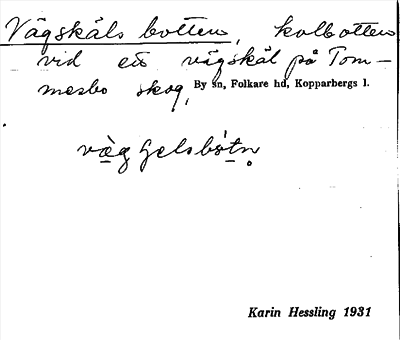 Vägskäls botten, kolbotten
vid ett vägskäl på Tom-
mesbo skog,
By sn, Folkare hd, Kopparbergs l.
Karin Hessling 1931